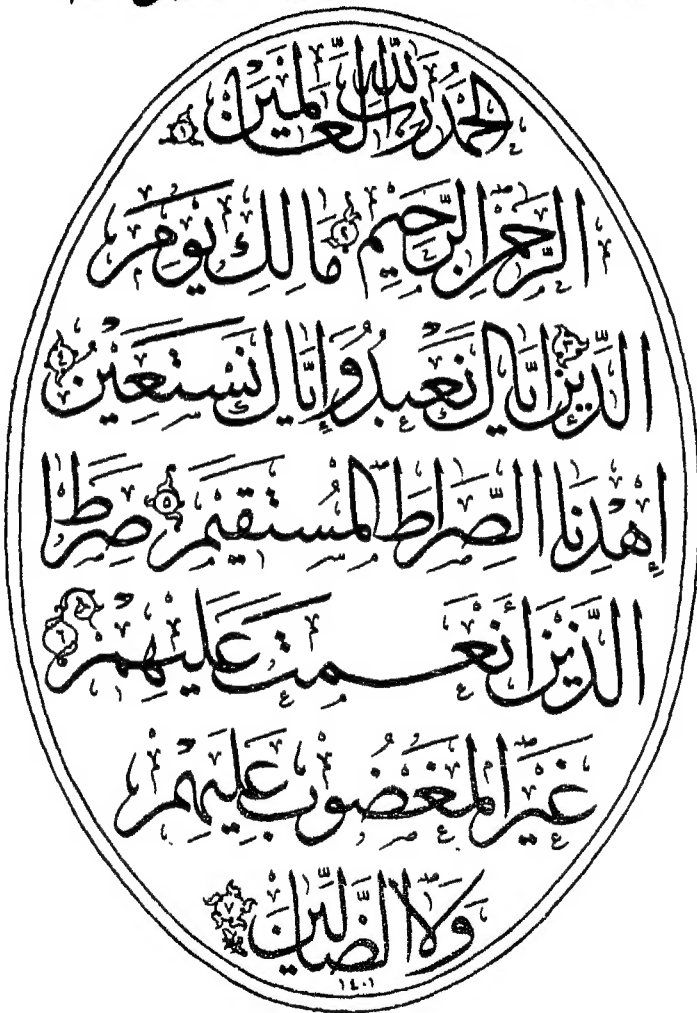 الحَمْدُ لِلّٰهِ رَبِّ العَالَمِينَ ١
الرَّحْمٰنِ الرَّحِيمِ ٢ مَالِكِ يَوْمِ
الدِّينِ ٣ إِيَّاكَ نَعْبُدُ وَإِيَّاكَ نَسْتَعِينُ ٤
إِهْدِنَا الصِّرَاطَ المُسْتَقِيمَ ٥ صِرَاطَ
الَّذِينَ أَنْعَمْتَ عَلَيْهِمْ ٦
غَيْرِ المَغْضُوبِ عَلَيْهِمْ
وَلَا الضَّالِّينَ ٧
١٤٠١